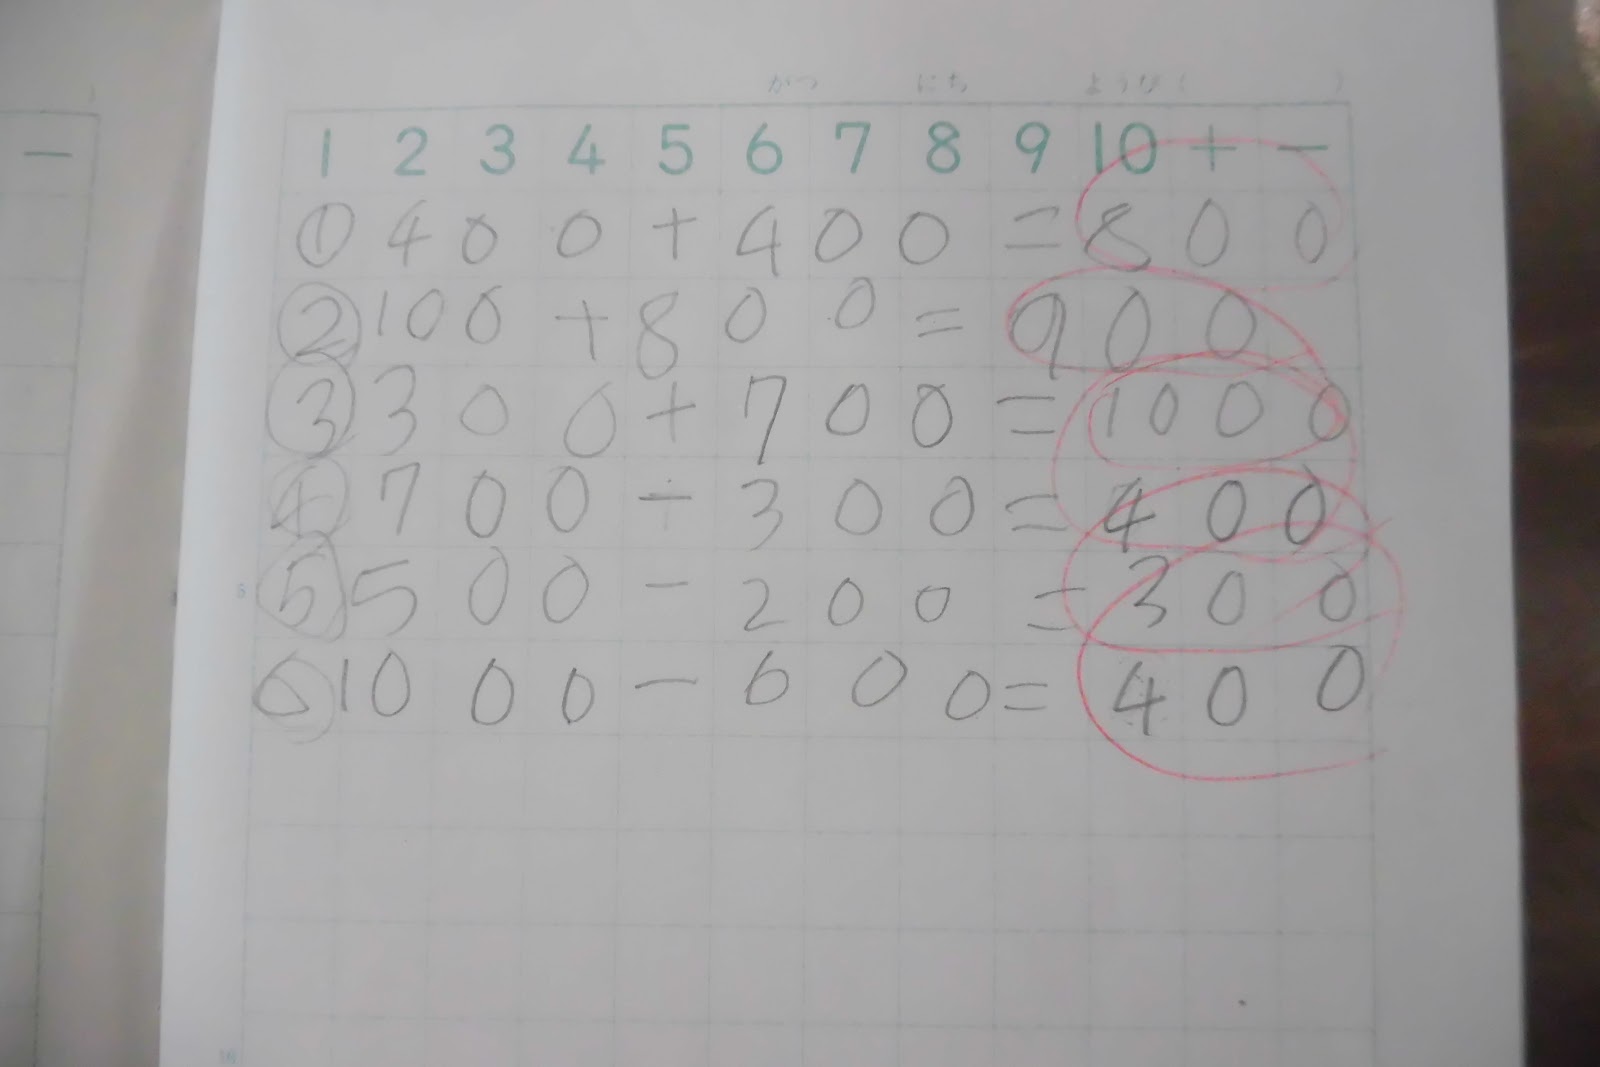 がつ にち ようび( )
1 2 3 4 5 6 7 8 9 10 + −
① 400+400=800
② 100+800=900
③ 300+700=1000
④ 700−300=400
⑤ 500−200=300
⑥ 1000−600=400
5